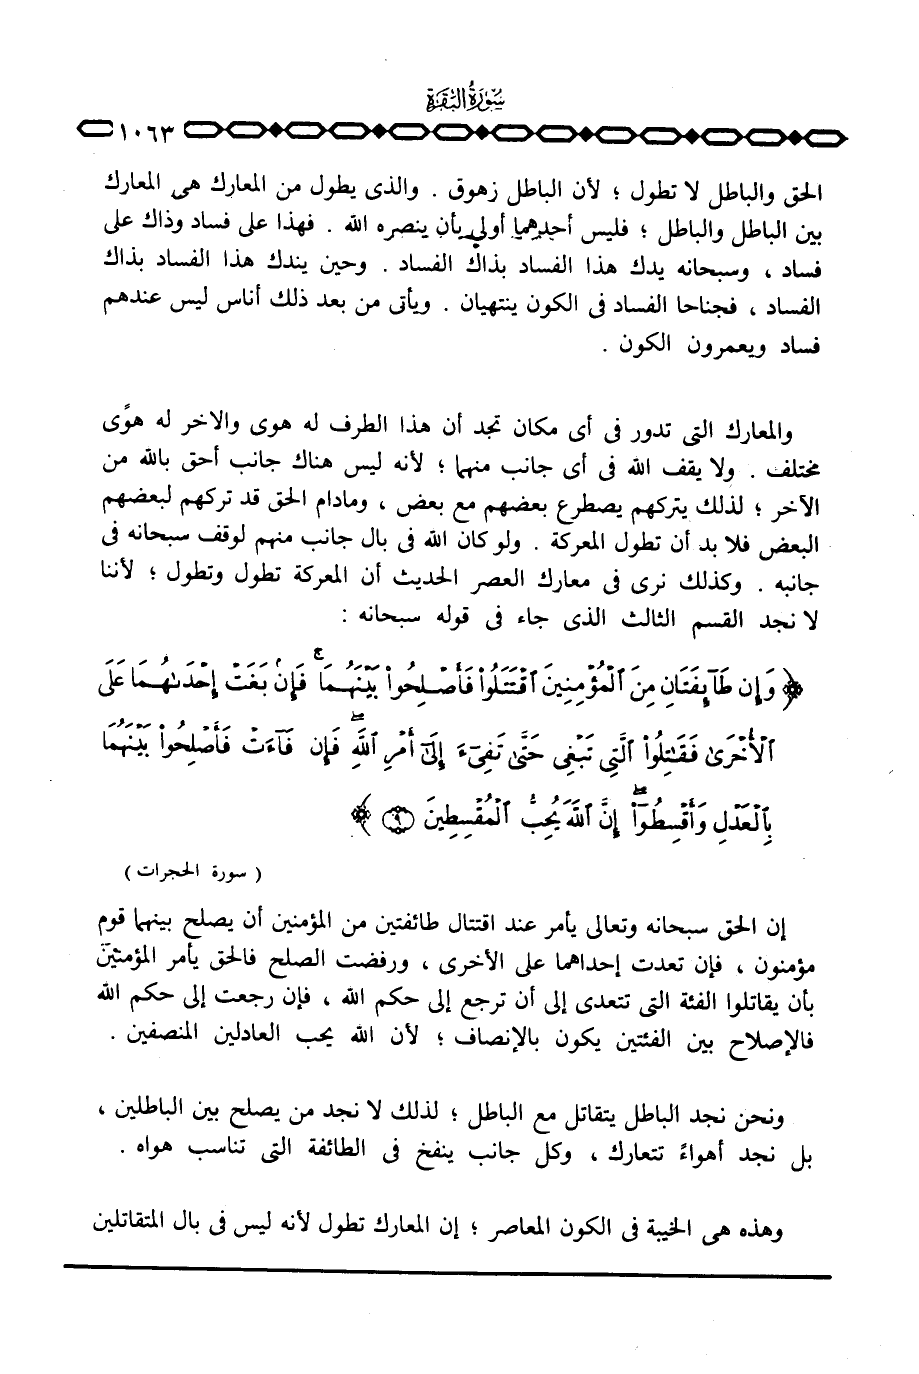 سورة البقرة
١٠٦٣
الحق والباطل لا تطول ؛ لأن الباطل زهوق . والذى يطول من المعارك هى المعارك
بين الباطل والباطل ؛ فليس أحدهما أولى بأن ينصره الله . فهذا على فساد وذاك على
فساد ، وسبحانه يدك هذا الفساد بذاك الفساد . وحين يندك هذا الفساد بذاك
الفساد ، فجناحا الفساد فى الكون ينتهيان . ويأتى من بعد ذلك أناس ليس عندهم
فساد ويعمرون الكون .
والمعارك التى تدور فى أى مكان تجد أن هذا الطرف له هوى والاخر له هوًى
مختلف . ولا يقف الله فى أى جانب منهما ؛ لأنه ليس هناك جانب أحق بالله من
الآخر ؛ لذلك يتركهم يصطرع بعضهم مع بعض ، ومادام الحق قد تركهم لبعضهم
البعض فلا بد أن تطول المعركة . ولو كان الله فى بال جانب منهم لوقف سبحانه فى
جانبه . وكذلك نرى فى معارك العصر الحديث أن المعركة تطول وتطول ؛ لأننا
لا نجد القسم الثالث الذى جاء فى قوله سبحانه :
﴿ وَإِن طَآئِفَتَانِ مِنَ ٱلْمُؤْمِنِينَ ٱقْتَتَلُوا۟ فَأَصْلِحُوا۟ بَيْنَهُمَا ۖ فَإِنۢ بَغَتْ إِحْدَىٰهُمَا عَلَى
ٱلْأُخْرَىٰ فَقَٰتِلُوا۟ ٱلَّتِى تَبْغِى حَتَّىٰ تَفِىٓءَ إِلَىٰٓ أَمْرِ ٱللَّهِ ۚ فَإِن فَآءَتْ فَأَصْلِحُوا۟ بَيْنَهُمَا
بِٱلْعَدْلِ وَأَقْسِطُوٓا۟ ۖ إِنَّ ٱللَّهَ يُحِبُّ ٱلْمُقْسِطِينَ ۝٩ ﴾
( سورة الحجرات )
إن الحق سبحانه وتعالى يأمر عند اقتتال طائفتين من المؤمنين أن يصلح بينهما قوم
مؤمنون ، فإن تعدت إحداهما على الأخرى ، ورفضت الصلح فالحق يأمر المؤمنين
بأن يقاتلوا الفئة التى تتعدى إلى أن ترجع إلى حكم الله ، فإن رجعت إلى حكم الله
فالإصلاح بين الفئتين يكون بالإنصاف ؛ لأن الله يحب العادلين المنصفين .
ونحن نجد الباطل يتقاتل مع الباطل ؛ لذلك لا نجد من يصلح بين الباطلين ،
بل نجد أهواءً تتعارك ، وكل جانب ينفخ فى الطائفة التى تناسب هواه .
وهذه هى الخيبة فى الكون المعاصر ؛ إن المعارك تطول لأنه ليس فى بال المتقاتلين